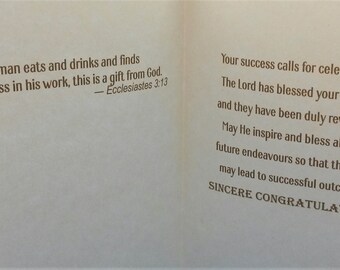 man eats and drinks and finds
in his work, this is a gift from God.
— Ecclesiastes 3:13
Your success calls for
The Lord has blessed your
and they have been duly
May He inspire and bless
future endeavours so that
may lead to successful
SINCERE